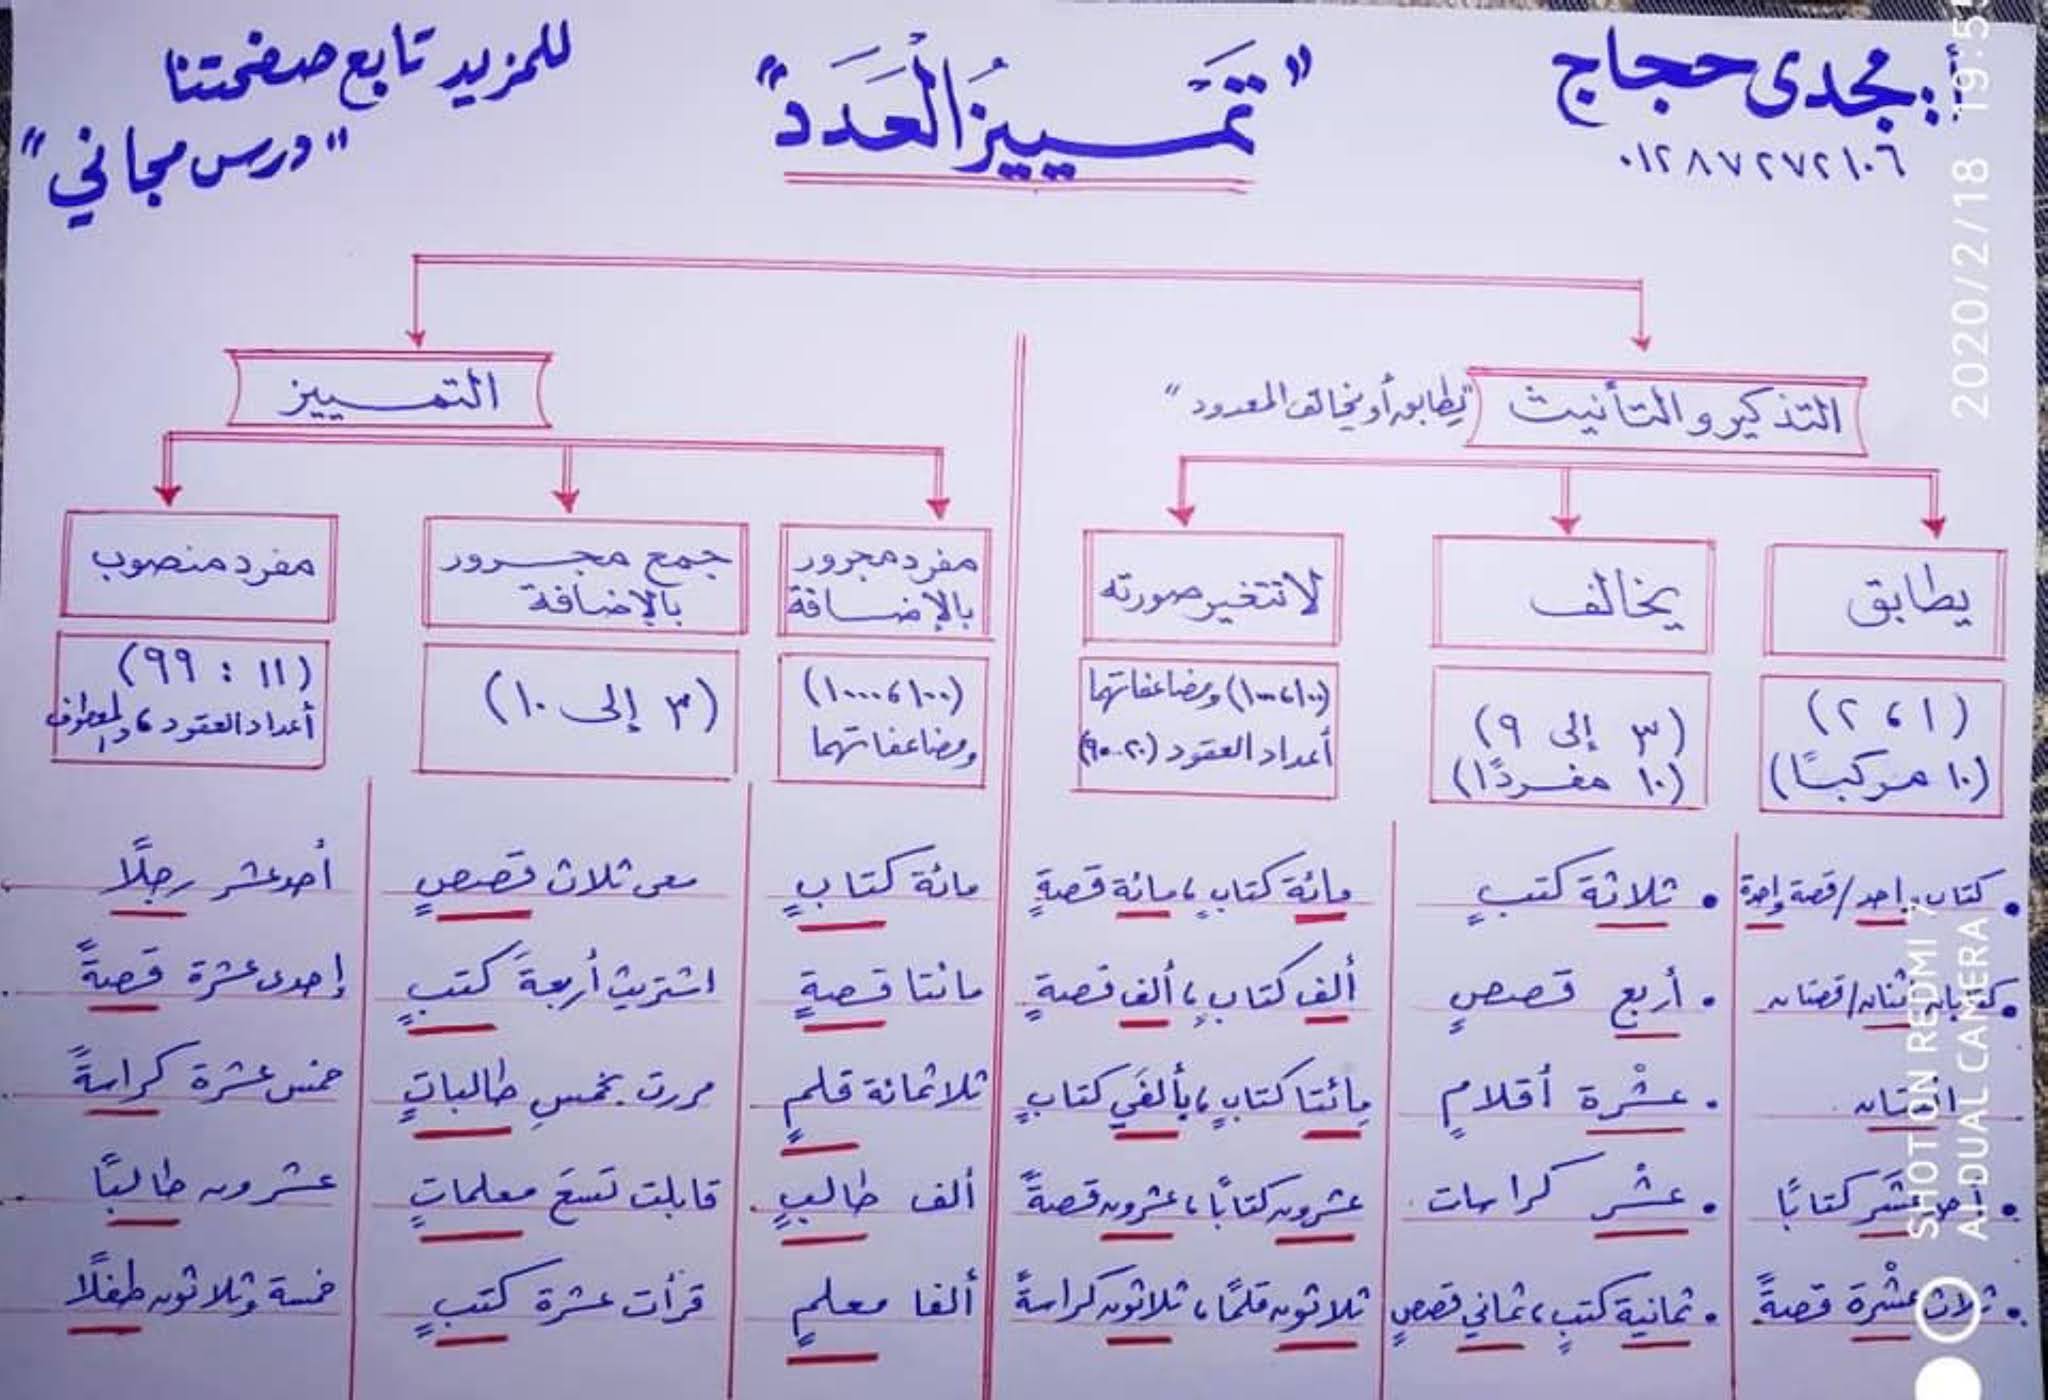 أ.مجدى حجاج
٠١٢٨٧٢٧٢١٠٦
"تَمَـيـيـزُ الْعَدَدِ"
للمزيد تابع صفحتنا
"درس مجاني"
التذكير والتأنيث "يطابق أو يخالف المعدود"
يطابق
(١ ، ٢)
(١٠ مركبًا)
كتاب واحد / قصة واحدة
كتابان اثنان / قصتان
اثنتان
أحد عشَر كتابًا
ثلاث عشْرة قصةً
يخالف
(٣ إلى ٩)
(١٠ مفردًا)
ثلاثة كتبٍ
أربع قصصٍ
عشْرة أقلامٍ
عشْر كراسات
ثمانية كتبٍ ، ثماني قصصٍ
لا تتغير صورته
(١٠٠ ، ١٠٠٠) ومضاعفاتهما
أعداد العقود (٢٠..٩٠)
مائة كتابٍ ، مائة قصةٍ
ألف كتابٍ ، ألف قصةٍ
مائتا كتابٍ ، بألفَي كتابٍ
عشرون كتابًا ، عشرون قصةً
ثلاثون قلمًا ، ثلاثون كراسةً
التمييز
مفرد مجرور
بالإضافة
(١٠٠ ، ١٠٠٠)
ومضاعفاتهما
مائة كتابٍ
مائتا قصةٍ
ثلاثمائة قلمٍ
ألف طالبٍ
ألفا معلمٍ
جمع مجرور
بالإضافة
(٣ إلى ١٠)
معى ثلاث قصصٍ
اشتريت أربعةَ كتبٍ
مررت بخمسِ طالباتٍ
قابلت تسعَ معلماتٍ
قرأت عشرة كتبٍ
مفرد منصوب
(١١ : ٩٩)
أعداد العقود ، والمعطوف
أحد عشر رجلًا
إحدى عشرة قصةً
خمس عشرة كراسةً
عشرون طالبًا
خمسة وثلاثون طفلًا
2020/2/18 19:5
SHOT ON REDMI 7
AI DUAL CAMERA